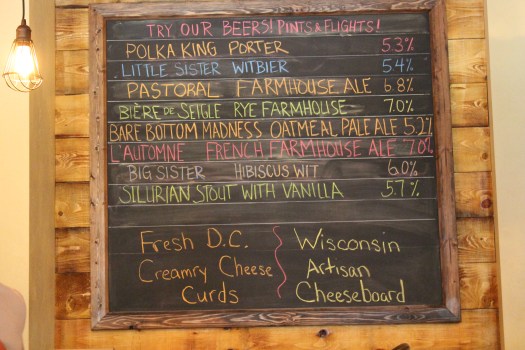 TRY OUR BEERS! PINTS & FLIGHTS!
POLKA KING PORTER 5.3%
LITTLE SISTER WITBIER 5.4%
PASTORAL FARMHOUSE ALE 6.8%
BIÈRE DE SEIGLE RYE FARMHOUSE 7.0%
BARE BOTTOM MADNESS OATMEAL PALE ALE 5.2%
L'AUTOMNE FRENCH FARMHOUSE ALE 7.0%
BIG SISTER HIBISCUS WIT 6.0%
SILURIAN STOUT WITH VANILLA 5.7%
Fresh D.C.
Creamry Cheese
Curds
Wisconsin
Artisan
Cheeseboard